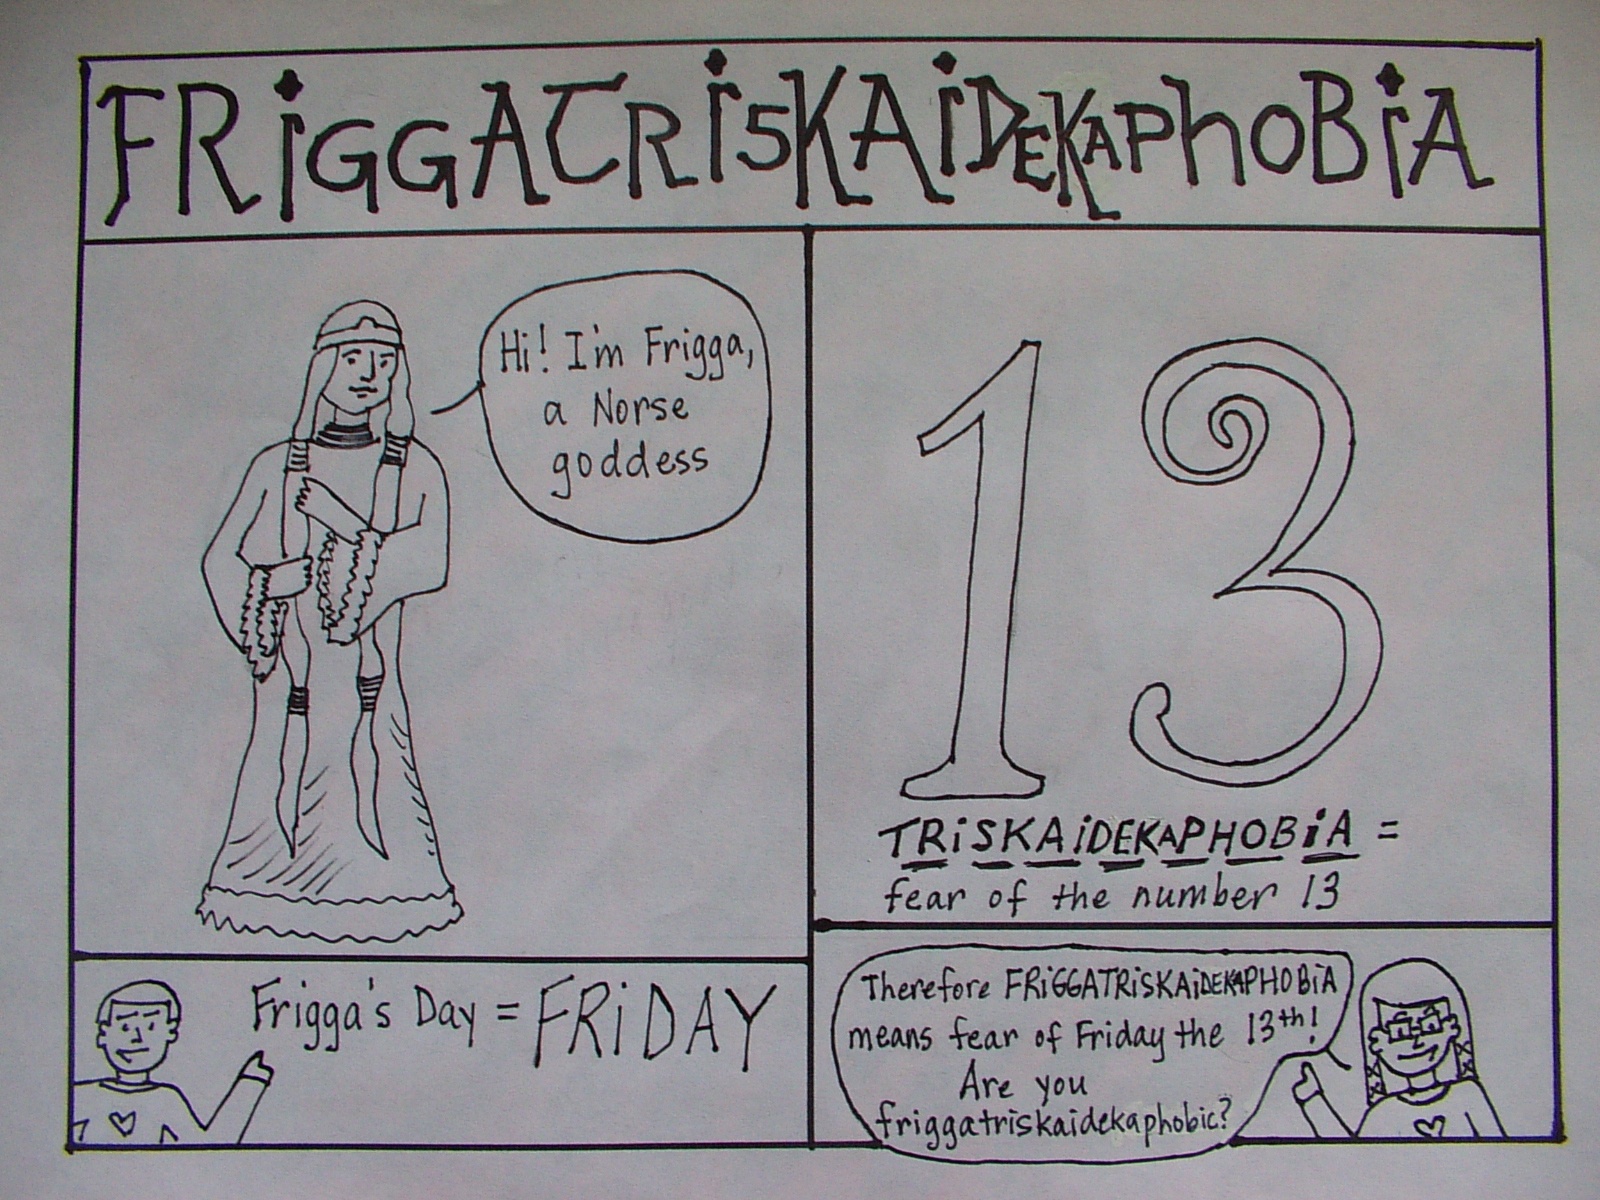 FRiGGATRiSKAiDEKAPhOBiA
Hi! I'm Frigga,
a Norse
goddess
13
TRiSKAiDEKAPHOBiA =
fear of the number 13
Frigga's Day = FRiDAY
Therefore FRiGGATRiSKAiDEKAPHOBiA
means fear of Friday the 13th!
Are you
friggatriskaidekaphobic?